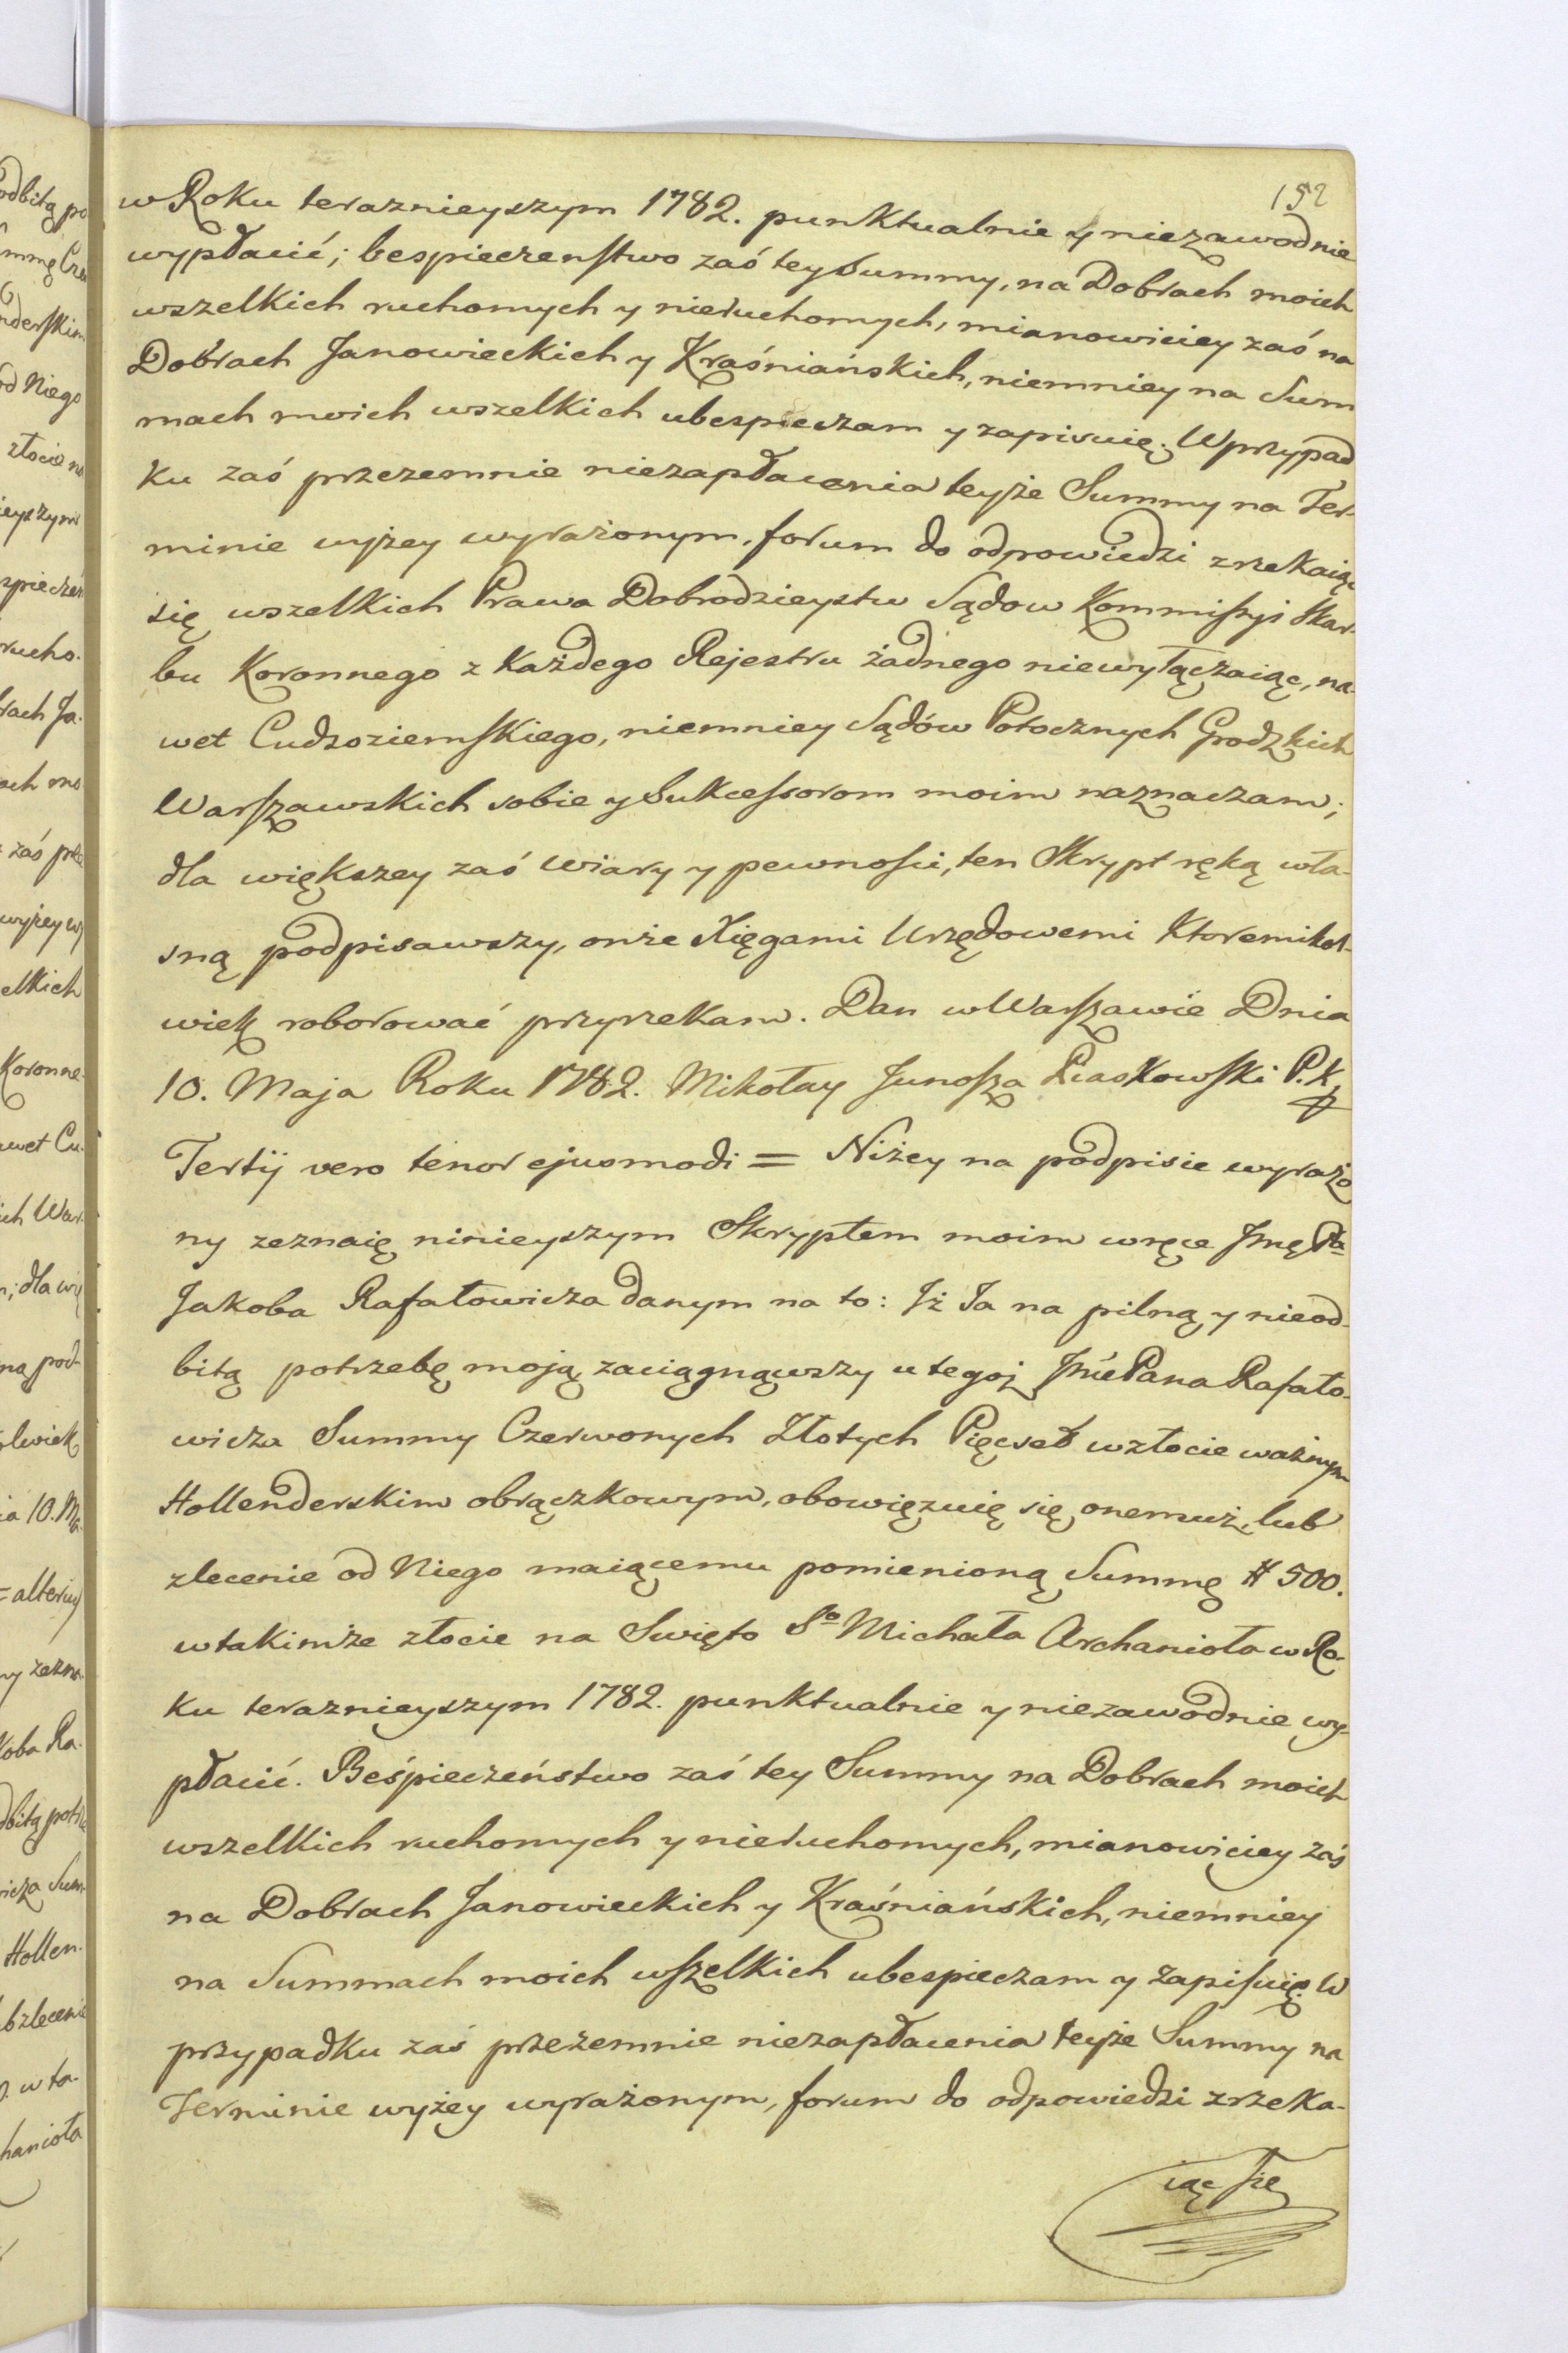 152
w Roku terazniejszym 1782. punktualnie y niezawodnie
wypłacić; bespieczenstwo zaś tey Summy, na Dobrach moich
wszelkich ruchomych y nieruchomych, mianowiciey zaś na
Dobrach Janowieckich y Kraśniańskich, niemniey na Sum
mach moich wszelkich ubespieczam y zapisuię. W przypad
ku zaś przezemnie niezapłacenia teyże Summy na Ter-
minie wyżey wyrażonym, forum do odpowiedzi zrzekaiąc
się wszelkich Prawa Dobrodzieystw Sądow Kommissyi Skar-
bu Koronnego z Każdego Rejestru żadnego niewyłączaiąc, na-
wet Cudzoziemskiego, niemniey Sądów Potocznych Grodzkich
Warszawskich sobie y Sukcessorom moim naznaczam;
dla większey zaś wiary y pewnosci, ten Skrypt ręką wła-
sną podpisawszy, onże Xięgami Urzędowemi Ktoremikol-
wiek roborować przyrzekam. Dan w Warszawie Dnia
10. Maja Roku 1782. Mikołay Junosza Piaskowski P.K.
Tertij vero tenor ejusmodi = Niżey na podpisie wyrażo
ny zeznaię ninieyszym Skryptem moim w ręce Jmę Pa
Jakoba Rafałowicza danym na to: Iż Ja na pilną y nieod-
bitą potrzebę moją zaciągnąwszy u tegoż Jmć Pana Rafało-
wicza Summy Czerwonych Złotych Pięcset w złocie ważnym
Hollenderskim obrączkowym, obowięzuię się onemuż, lub
zlecenie od Niego maiącemu pomienioną Summę # 500.
w takimże złocie na Swięto So Michała Archanioła w Ro-
ku teraznieyszym 1782. punktualnie y niezawodnie wy-
płacić. Beśpieczeństwo zaś tey Summy na Dobrach moich
wszelkich ruchomych y nieruchomych, mianowiciey zaś
na Dobrach Janowieckich y Kraśniańskich, niemniey
na Summach moich wszelkich ubespieczam y zapisuię. W
przypadku zaś przezemnie niezapłacenia teyże Summy na
Terminie wyżey wyrażonym, forum do odpowiedzi zrzeka-
iąc się